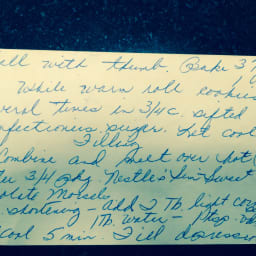 well with thumb. Bake 3
While warm roll cookies
several times in 3/4 c. sifted
confectioners sugar. Let cool
Filling
Combine and melt over hot
3/4 pkg. Nestle's Semi-Sweet
Morsels
shortening - Add 2 Tb. light corn
1 Tb. water - 1 tsp.
Cool 5 min. Fill depression